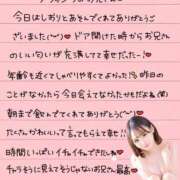 今日はしおりとあそんでくれてありがとうご
ざいました(〜') ドア開けた時からお兄さん
のいい匂いが充満してて幸せだったー!
年齢も近くてしゃべりやすくてよかった 昨日の
ことがなかったら今日会えてなかったもだよね
朝まで飲んでてくれてありがとう(〜')
たくさんかわいいって言ってもらえて幸せ!!
時間いっぱいイチャイチャできたしね
チャラそうに見えてそうじゃないお兄さん最高